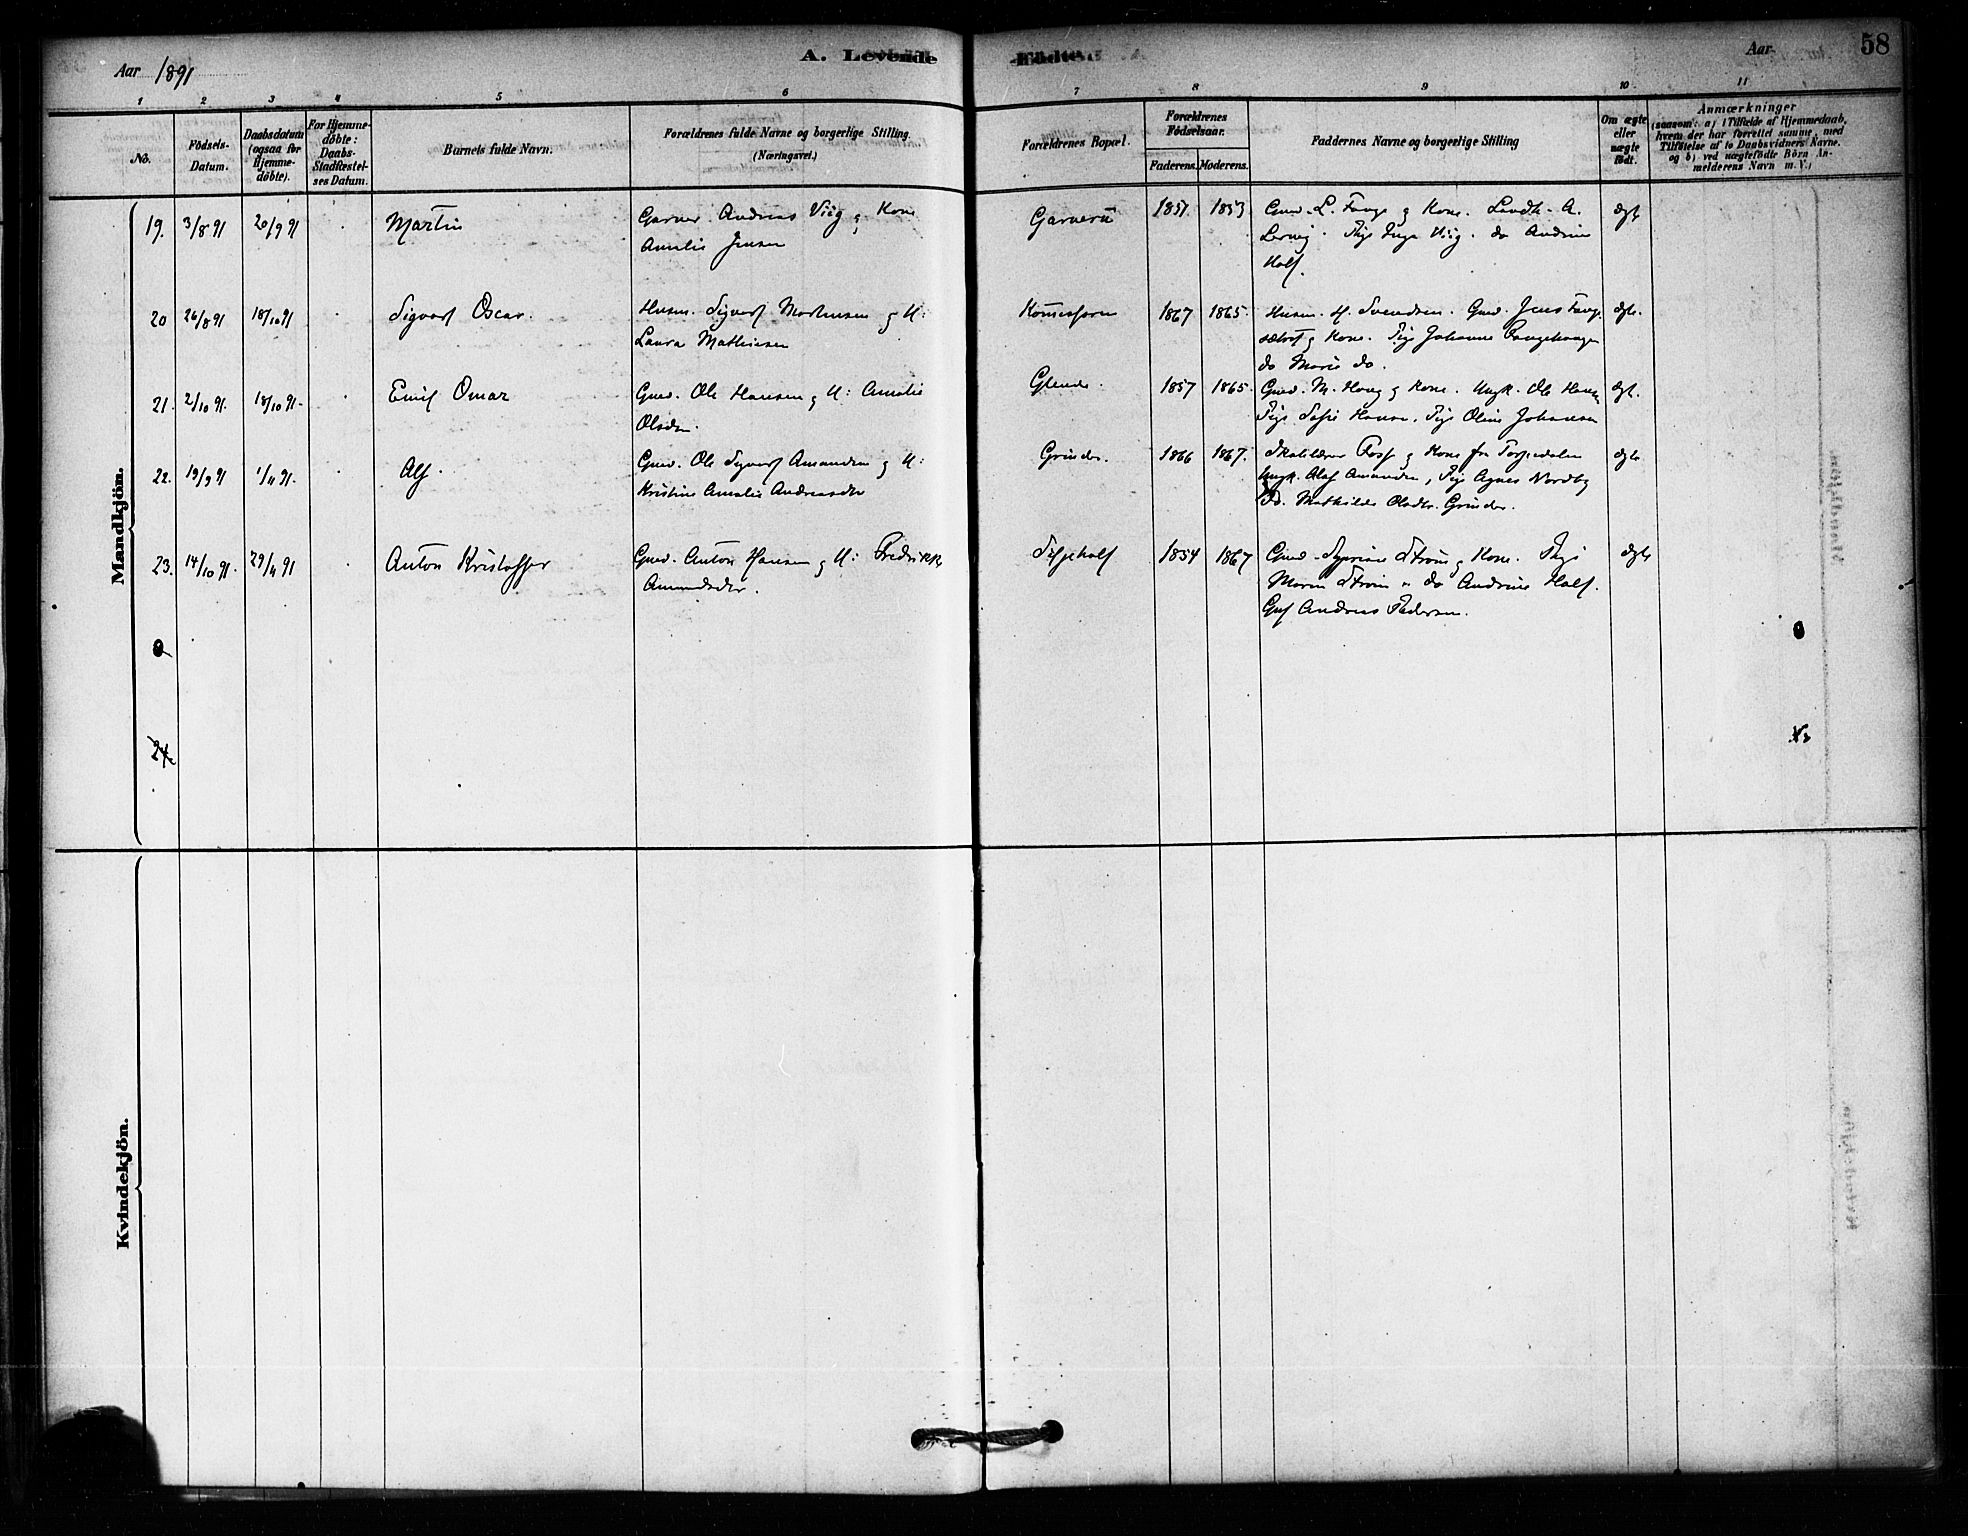 Aar 1891
A. Levende
Födte.
Aar
58
1 2 3 4 5 6 7 8 9 10 11
No.
Födsels-
Datum.
Daabsdatum
(ogsaa for
Hjemme-
döbte).
For Hjemme-
döbte:
Daabs-
Stadfæstel-
ses Datum.
Barnets fulde Navn.
Forældrenes fulde Navne og borgerlige Stilling.
(Næringsvei.)
Forældrenes Bopæl.
Forældrenes
Födselsaar.
Faderens. Moderens.
Faddernes Navne og borgerlige Stilling
Om ægte
eller
uægte
födt.
Anmærkninger
(saasom: a) i Tilfælde af Hjemmedaab,
hvem der har forrettet samme, med
Tilföielse af to Daabsvidners Navne.
og b) ved uægtefödte Börn An-
melderens Navn m. V.)
Mandkjön.
19. 3/8 91 20/9 91 Martin
Garver Andreas Viig og Kone
Amalie Jensen
1851 1853
Gmd. L. Fange og Kone. Landh. A.
Pige Inga Viig. do Andrine
Holf.
ægte
20 26/8 91 18/10 91 Sigvart Oscar.
Husm. Sigvart Mortensen og H:
Laura Mathisen
1867 1865.
Husm. H. Svendsen. Gmd. Jens
og Kone. Pige Johanne
do Marie do.
ægte.
21. 2/10 91. 18/10 91. Emil Omar
Gmd. Ole Hansen og H: Amalie
Olsdtr.
1857 1865.
Gmd. M. Haug og Kone. Ungk. Ole Hansen
Pige Sofie Hansen. Pige Oline Johansen
ægt.
22. 19/9 91 1/11 91. Alf.
Gmd. Ole Sigvart Amundsen og H:
Kristine Amalie Andreasdtr
Grinder.
1866 1867.
og Kone fra Torpedalen
Ungk. Olaf Amundsen, Pige Agnes Nordby
Do. Mathilde Olsdtr. Grinder.
ægte
23. 14/10 91. 29/11 91 Anton Kristoffer
Gmd. Anton Hansen og H: Fredrikke
Amundsdtr.
1854 1867
Gmd. Strøm og Kone. Pige
Maren Strøm. do Andrine Holf.
Andreas Pedersen.
ægte
24
Kvindekjön.